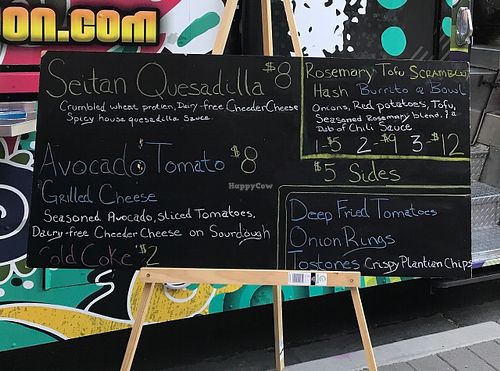 ON.COM
Seitan Quesadilla $8
Crumbled wheat protien, Dairy-free CheederCheese
Spicy house quesadilla sauce.
Avocado Tomato $8
Grilled Cheese
Seasoned Avocado, sliced Tomatoes,
Dairy-free CheederCheese on Sourdough
Cold Coke $2
Rosemary Tofu SCRAMBLE
Hash Burrito a Bowl
Onions, Red potatoes, Tofu,
Seasoned Rosemary blend, & a
Dab of Chili Sauce
1-$5 2-$9 3-$12
$5 Sides
Deep Fried Tomatoes
Onion Rings
Tostones Crispy Plantien Chips
HappyCow